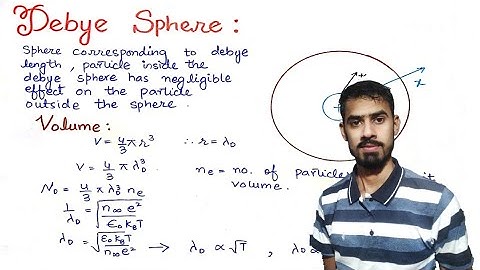 Debye Sphere :
Sphere corresponding to debye
length, particle inside the
debye sphere has negligible
effect on the particle
outside the sphere.
Volume :
V = 4/3 π r³ ∴ r = λD
V = 4/3 π λD³
ne = no. of
volume.
ND = 4/3 π λD³ ne
1/λD = √(n∞ e²/ε0 kB T)
λD = √(ε0 kB T/n∞ e²) → λD ∝ √T , λD ∝